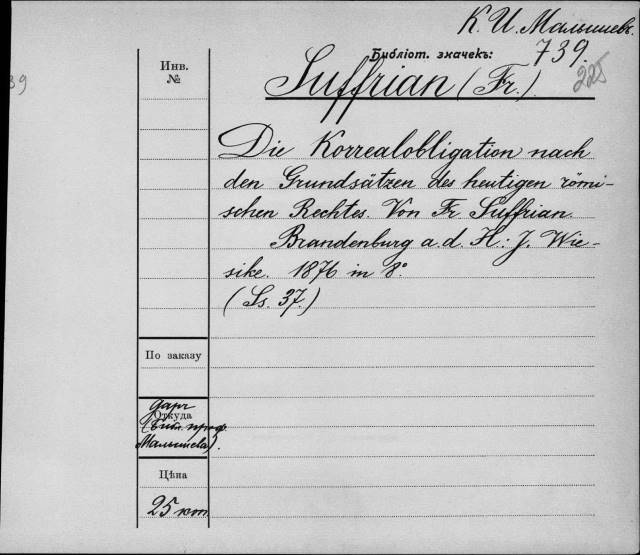 К. И. Малышевъ.
Библіот. значекъ: 739.
225
39
Инв.
№
Suffrian (Fr.).
Die Korrealobligation nach
den Grundsätzen des heutigen römi-
schen Rechtes. Von Fr. Suffrian.
Brandenburg a. d. H.: J. Wie-
sike. 1876 in 8°.
(Ss. 37.)
По заказу
Откуда
даръ
(Библ. проф.
Малышева).
Цѣна
25 коп.